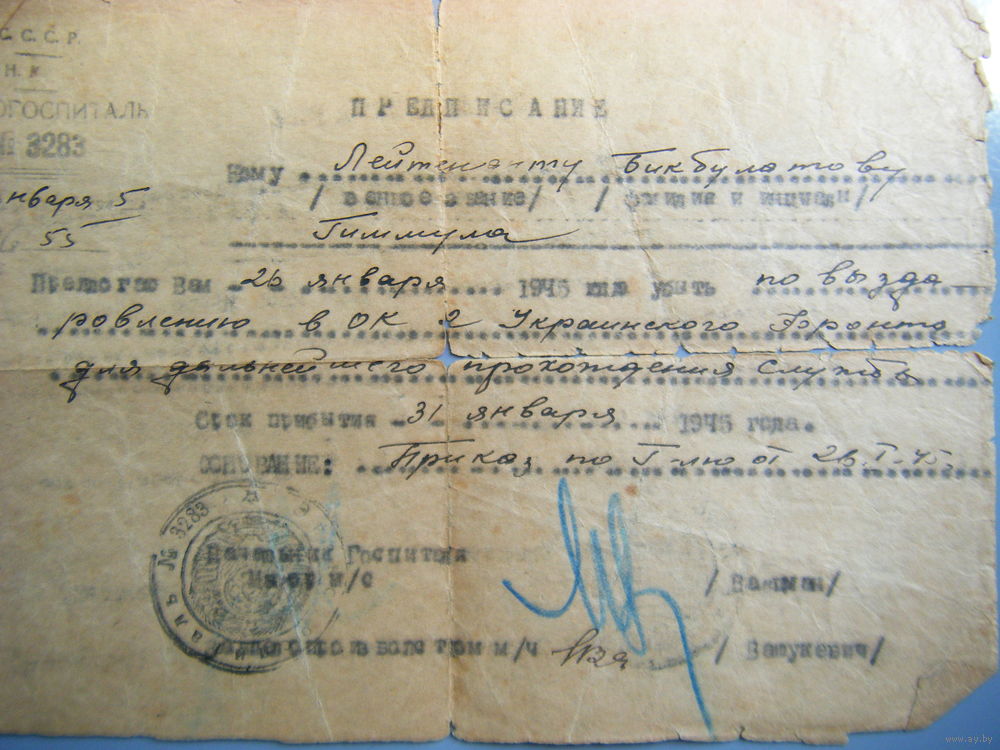 С. С. С. Р.
Н. К.
ОГОСПИТАЛЬ
№ 3283
нваря 5
55
ПРЕДПИСАНИЕ
Кому Лейтенанту Бикбулатову
/ военное звание/ / фамилия и инициалы/
Гиммула
Предлагаю Вам 26 января 1945 года убыть по вызда-
ровлению в ОК 2 Украинского Фронта
для дальнейшего прохождения службы
Срок прибытия 31 января 1945 года.
ОСНОВАНИЕ: Приказ по Г-лю от 26.I.45.
Начальник Госпиталя
Майор м/с / Вацман/
Делопроизводством м/ч / Вашукевич/
№ 3283
www.ay.by